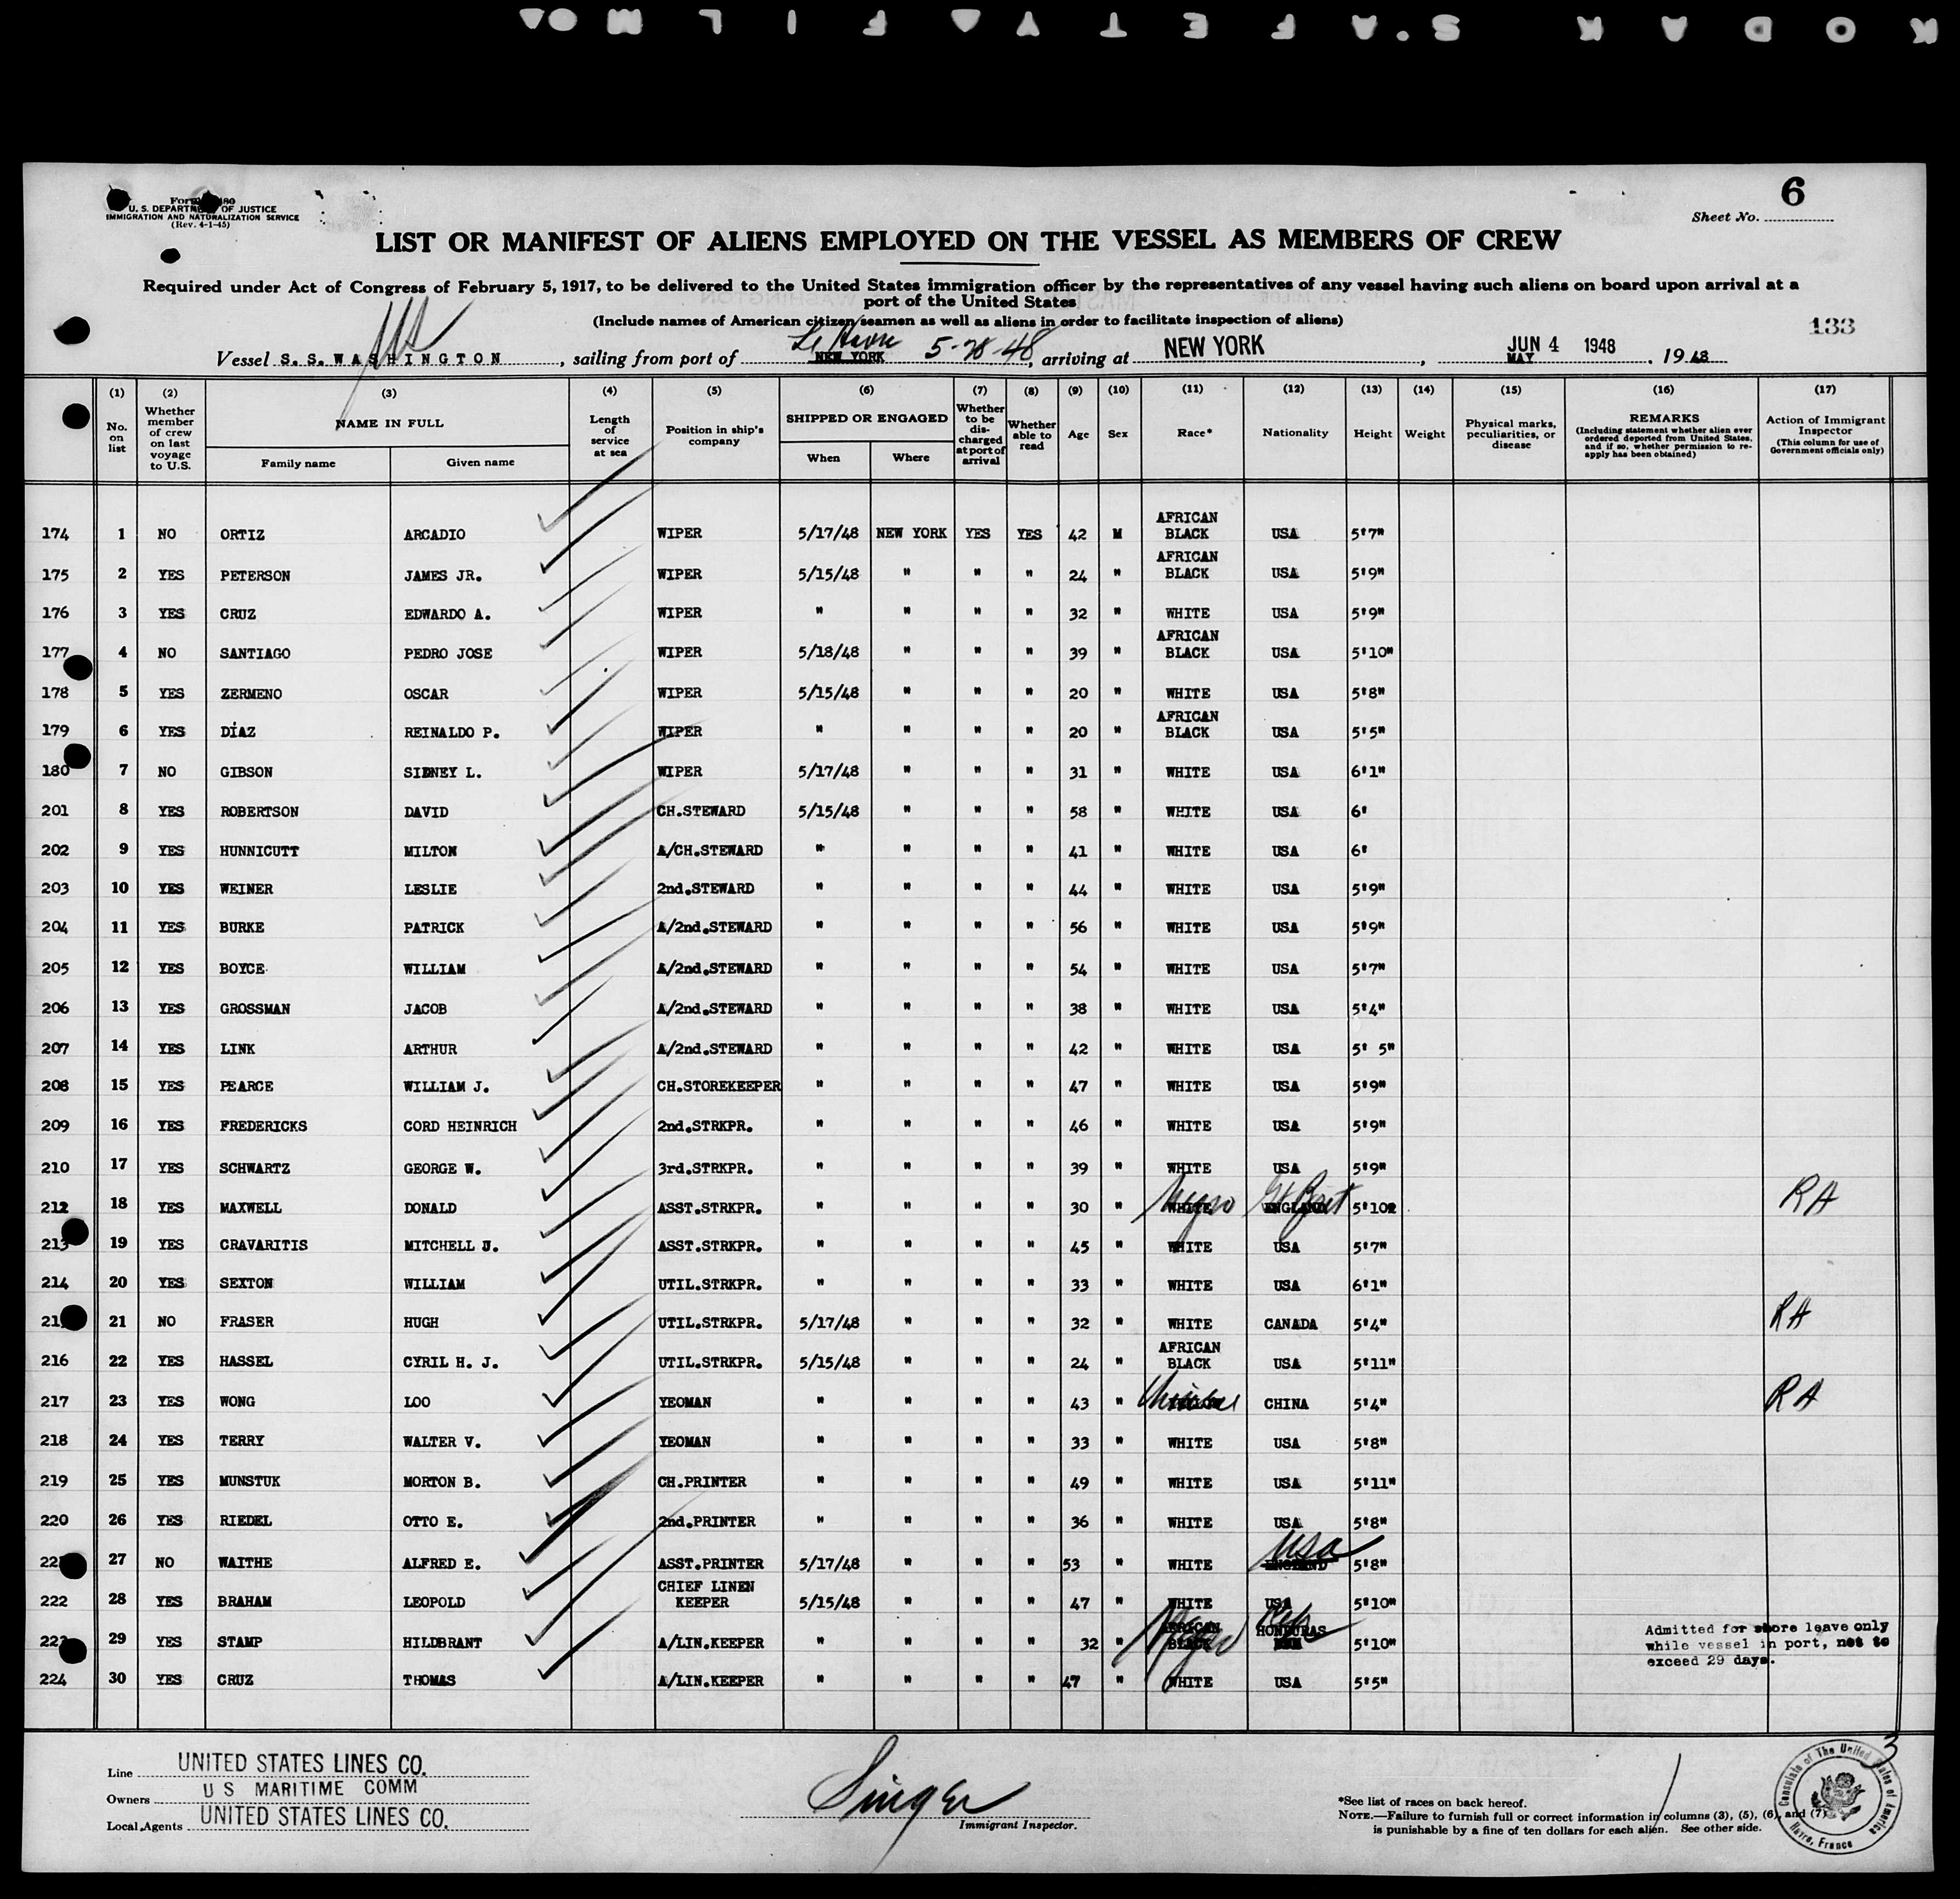 KODAK SAFETY FILM
Form I-480
U. S. DEPARTMENT OF JUSTICE
IMMIGRATION AND NATURALIZATION SERVICE
(Rev. 4-1-45)
6
Sheet No.
LIST OR MANIFEST OF ALIENS EMPLOYED ON THE VESSEL AS MEMBERS OF CREW
Required under Act of Congress of February 5, 1917, to be delivered to the United States immigration officer by the representatives of any vessel having such aliens on board upon arrival at a
port of the United States
(Include names of American citizen seamen as well as aliens in order to facilitate inspection of aliens)
133
Vessel S.S. WASHINGTON, sailing from port of NEW YORK Le Havre 5-28-48, arriving at NEW YORK, MAY JUN 4 1948, 19 48
(1) (2) (3) (4) (5) (6) (7) (8) (9) (10) (11) (12) (13) (14) (15) (16) (17)
No. on list
Whether member of crew on last voyage to U.S.
NAME IN FULL
Family name Given name
Length of service at sea
Position in ship's company
SHIPPED OR ENGAGED
When Where
Whether to be discharged at port of arrival
Whether able to read
Age
Sex
Race*
Nationality
Height
Weight
Physical marks, peculiarities, or disease
REMARKS
(Including statement whether alien ever ordered deported from United States, and if so, whether permission to re-apply has been obtained)
Action of Immigrant Inspector
(This column for use of Government officials only)
174 1 NO ORTIZ ARCADIO WIPER 5/17/48 NEW YORK YES YES 42 M AFRICAN BLACK USA 5'7"
175 2 YES PETERSON JAMES JR. WIPER 5/15/48 " " " 24 " AFRICAN BLACK USA 5'9"
176 3 YES CRUZ EDWARDO A. WIPER " " " " 32 " WHITE USA 5'9"
177 4 NO SANTIAGO PEDRO JOSE WIPER 5/18/48 " " " 39 " AFRICAN BLACK USA 5'10"
178 5 YES ZERMENO OSCAR WIPER 5/15/48 " " " 20 " WHITE USA 5'8"
179 6 YES DÍAZ REINALDO P. WIPER " " " " 20 " AFRICAN BLACK USA 5'5"
180 7 NO GIBSON SIDNEY L. WIPER 5/17/48 " " " 31 " WHITE USA 6'1"
201 8 YES ROBERTSON DAVID CH.STEWARD 5/15/48 " " " 58 " WHITE USA 6'
202 9 YES HUNNICUTT MILTON A/CH.STEWARD " " " " 41 " WHITE USA 6'
203 10 YES WEINER LESLIE 2nd.STEWARD " " " " 44 " WHITE USA 5'9"
204 11 YES BURKE PATRICK A/2nd.STEWARD " " " " 56 " WHITE USA 5'9"
205 12 YES BOYCE WILLIAM A/2nd.STEWARD " " " " 54 " WHITE USA 5'7"
206 13 YES GROSSMAN JACOB A/2nd.STEWARD " " " " 38 " WHITE USA 5'4"
207 14 YES LINK ARTHUR A/2nd.STEWARD " " " " 42 " WHITE USA 5' 5"
208 15 YES PEARCE WILLIAM J. CH.STOREKEEPER " " " " 47 " WHITE USA 5'9"
209 16 YES FREDERICKS CORD HEINRICH 2nd.STRKPR. " " " " 46 " WHITE USA 5'9"
210 17 YES SCHWARTZ GEORGE W. 3rd.STRKPR. " " " " 39 " WHITE USA 5'9"
212 18 YES MAXWELL DONALD ASST.STRKPR. " " " " 30 " WHITE Negro ENGLAND Gt Brit 5'10" RA
213 19 YES CRAVARITIS MITCHELL J. ASST.STRKPR. " " " " 45 " WHITE USA 5'7"
214 20 YES SEXTON WILLIAM UTIL.STRKPR. " " " " 33 " WHITE USA 6'1"
21 21 NO FRASER HUGH UTIL.STRKPR. 5/17/48 " " " 32 " WHITE CANADA 5'4" RA
216 22 YES HASSEL CYRIL H. J. UTIL.STRKPR. 5/15/48 " " " 24 " AFRICAN BLACK USA 5'11"
217 23 YES WONG LOO YEOMAN " " " " 43 " Chinese CHINA 5'4" RA
218 24 YES TERRY WALTER V. YEOMAN " " " " 33 " WHITE USA 5'8"
219 25 YES MUNSTUK MORTON B. CH.PRINTER " " " " 49 " WHITE USA 5'11"
220 26 YES RIEDEL OTTO E. 2nd.PRINTER " " " " 36 " WHITE USA 5'8"
22 27 NO WAITHE ALFRED E. ASST.PRINTER 5/17/48 " " " 53 " WHITE ENGLAND USA 5'8"
222 28 YES BRAHAM LEOPOLD CHIEF LINEN KEEPER 5/15/48 " " " 47 " WHITE USA 5'10"
223 29 YES STAMP HILDBRANT A/LIN.KEEPER " " " " 32 " AFRICAN BLACK Negro HONDURAS 5'10" Admitted for shore leave only
while vessel in port, not to
exceed 29 days.
224 30 YES CRUZ THOMAS A/LIN.KEEPER " " " " 47 " WHITE USA 5'5"
Line UNITED STATES LINES CO.
Owners U S MARITIME COMM
Local Agents UNITED STATES LINES CO.
Singer
Immigrant Inspector.
*See list of races on back hereof.
NOTE.—Failure to furnish full or correct information in columns (3), (5), (6), and (7)
is punishable by a fine of ten dollars for each alien. See other side.
Consulate of The United States of America
Havre, France
3